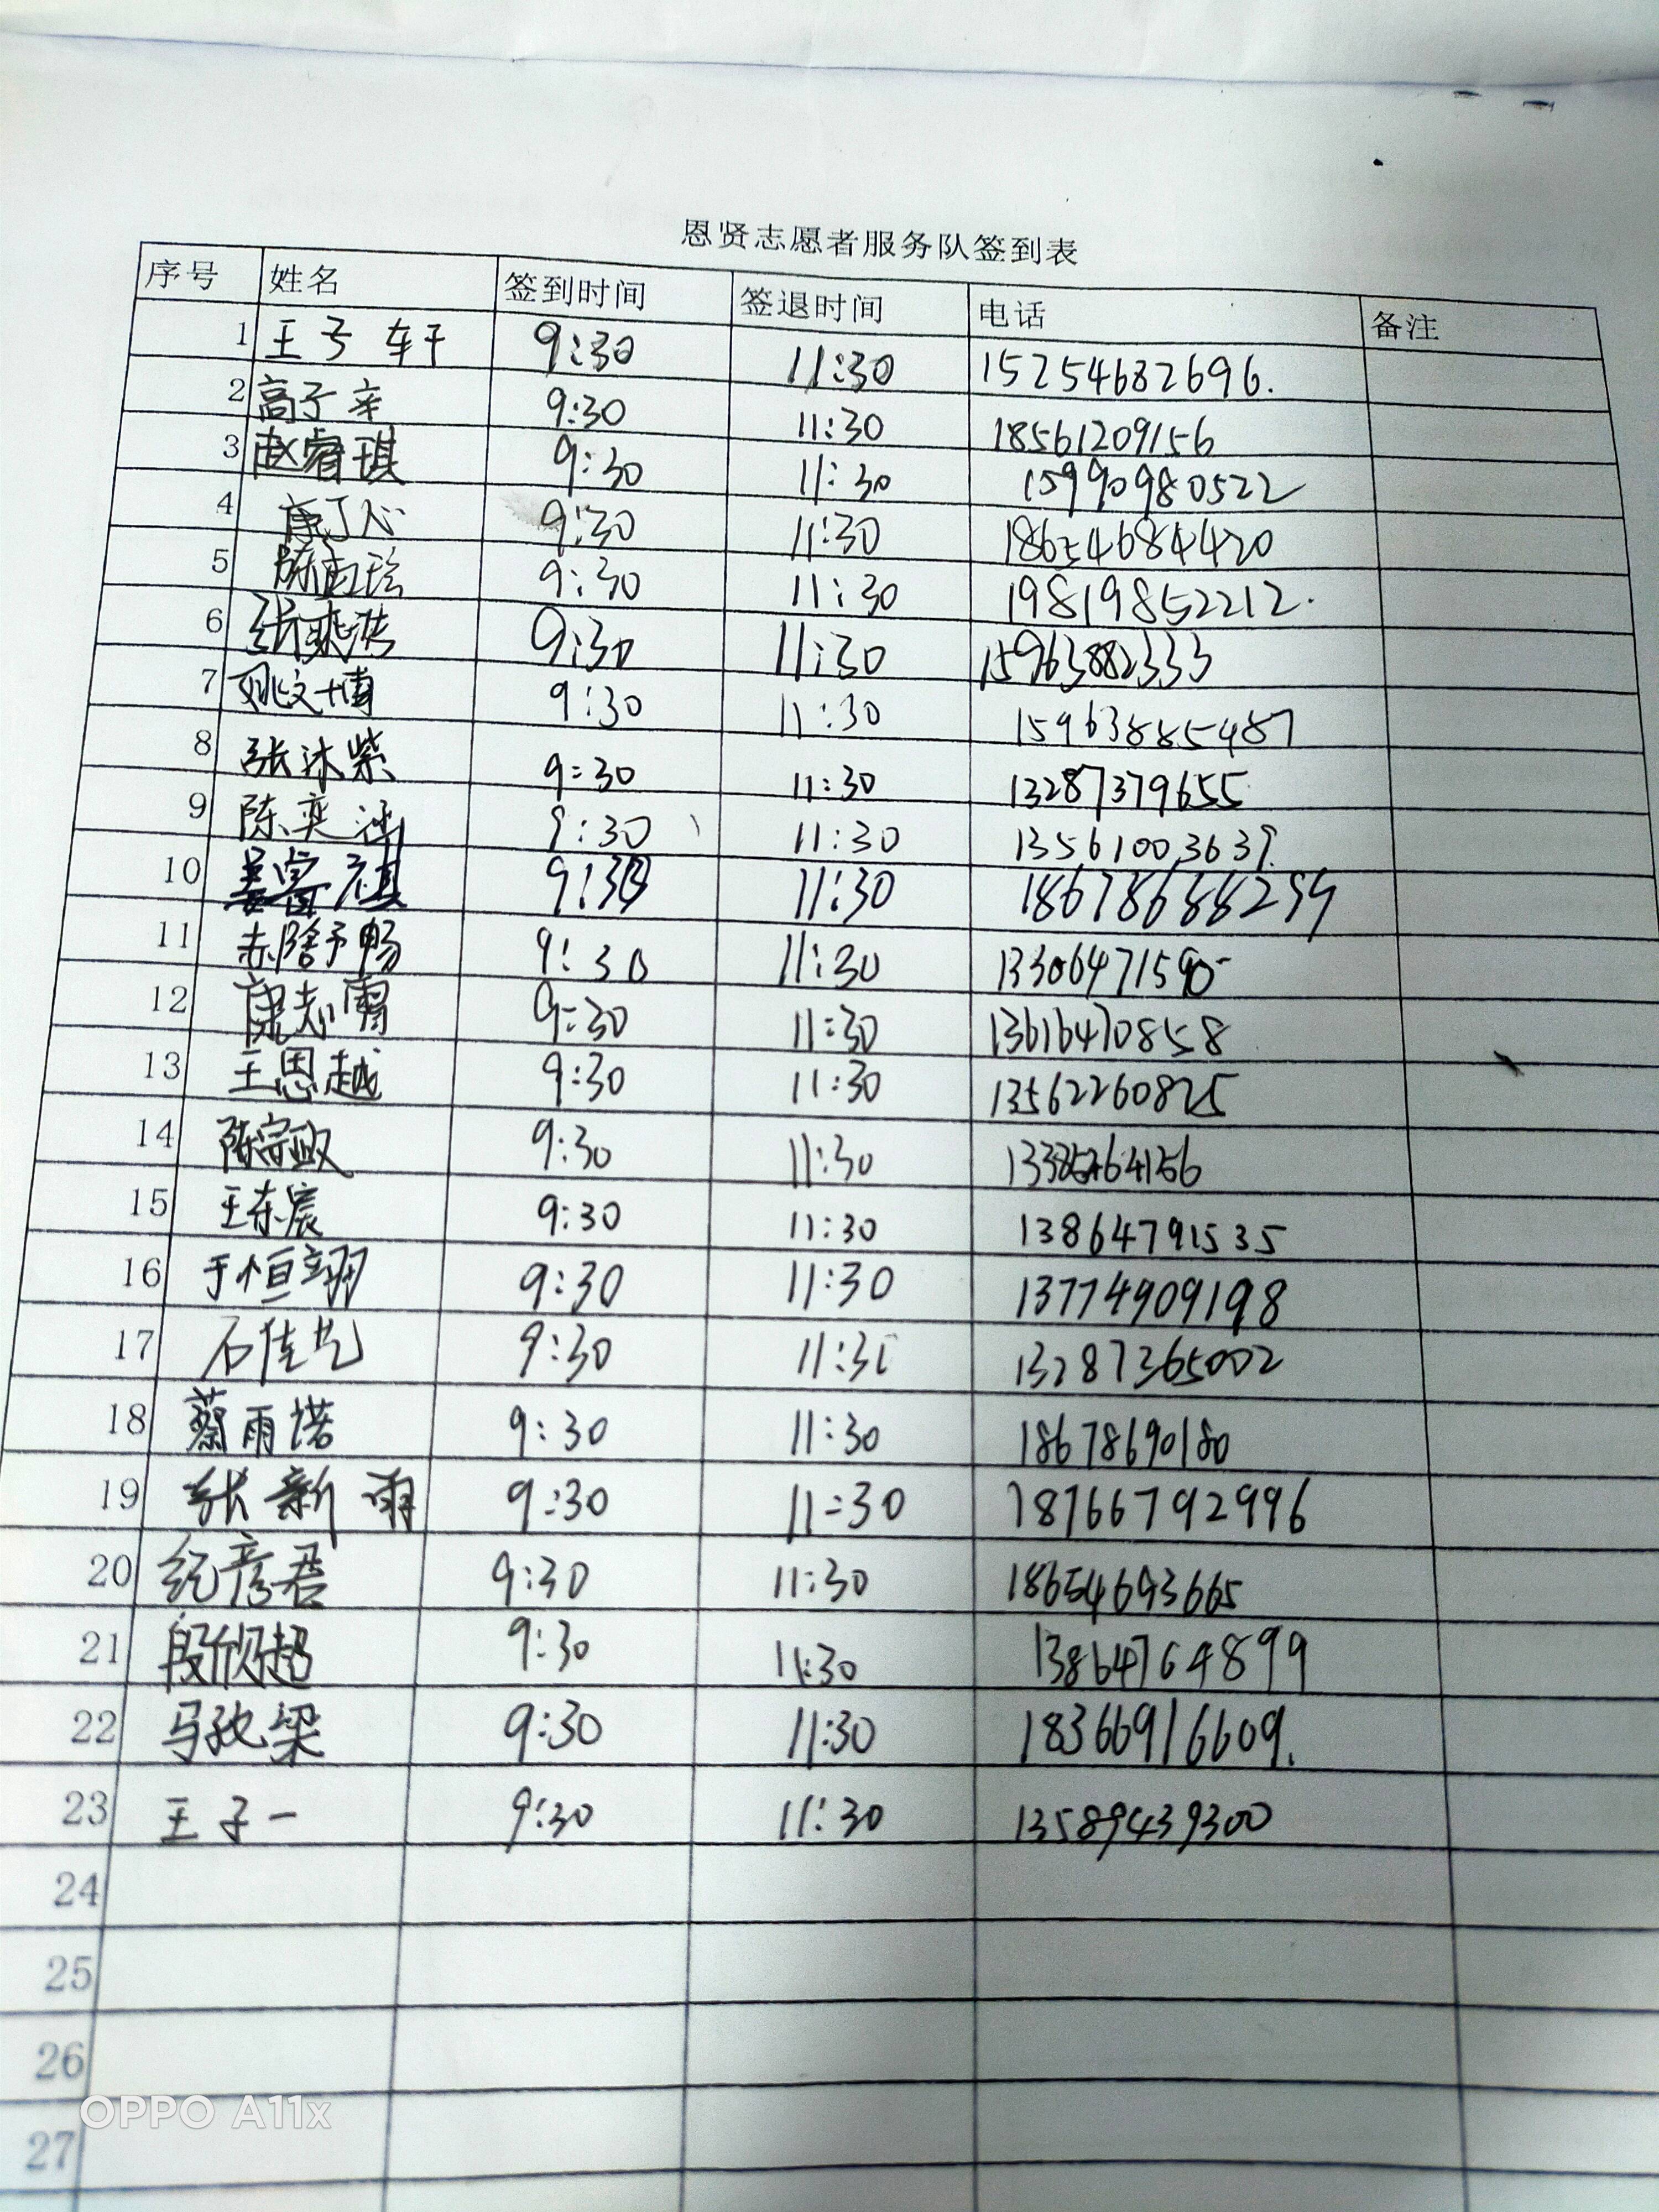 恩贤志愿者服务队签到表
序号 姓名 签到时间 签退时间 电话 备注
1 王子轩 9:30 11:30 15254682696.
2 高子辛 9:30 11:30 18561209156
3 赵睿琪 9:30 11:30 15990980522
4 康丁心 9:30 11:30 18654684420
5 陈 9:30 11:30 19819852212.
6 张奕洪 9:30 11:30 15963882333
7 姚文博 9:30 11:30 15963885487
8 张沐紫 9:30 11:30 13287379655
9 陈奕 9:30 11:30 13561003639.
10 姜睿祺 9:30 11:30 18678688299
11 舒畅 9:30 11:30 13306471590
12 康志 9:30 11:30 13616470858
13 王恩越 9:30 11:30 13562260825
14 陈宗政 9:30 11:30
15 王东宸 9:30 11:30 13864791535
16 于恒翊 9:30 11:30 13774909198
17 石佳艺 9:30 11:30 13287365002
18 蔡雨诺 9:30 11:30 18678690180
19 张新雨 9:30 11:30 18766792996
20 纪彦君 9:30 11:30 18654693665
21 段欣超 9:30 11:30 13864764899
22 马孜梁 9:30 11:30 18366916609.
23 王子一 9:30 11:30 13589439300
24
25
26
27
OPPO A11x